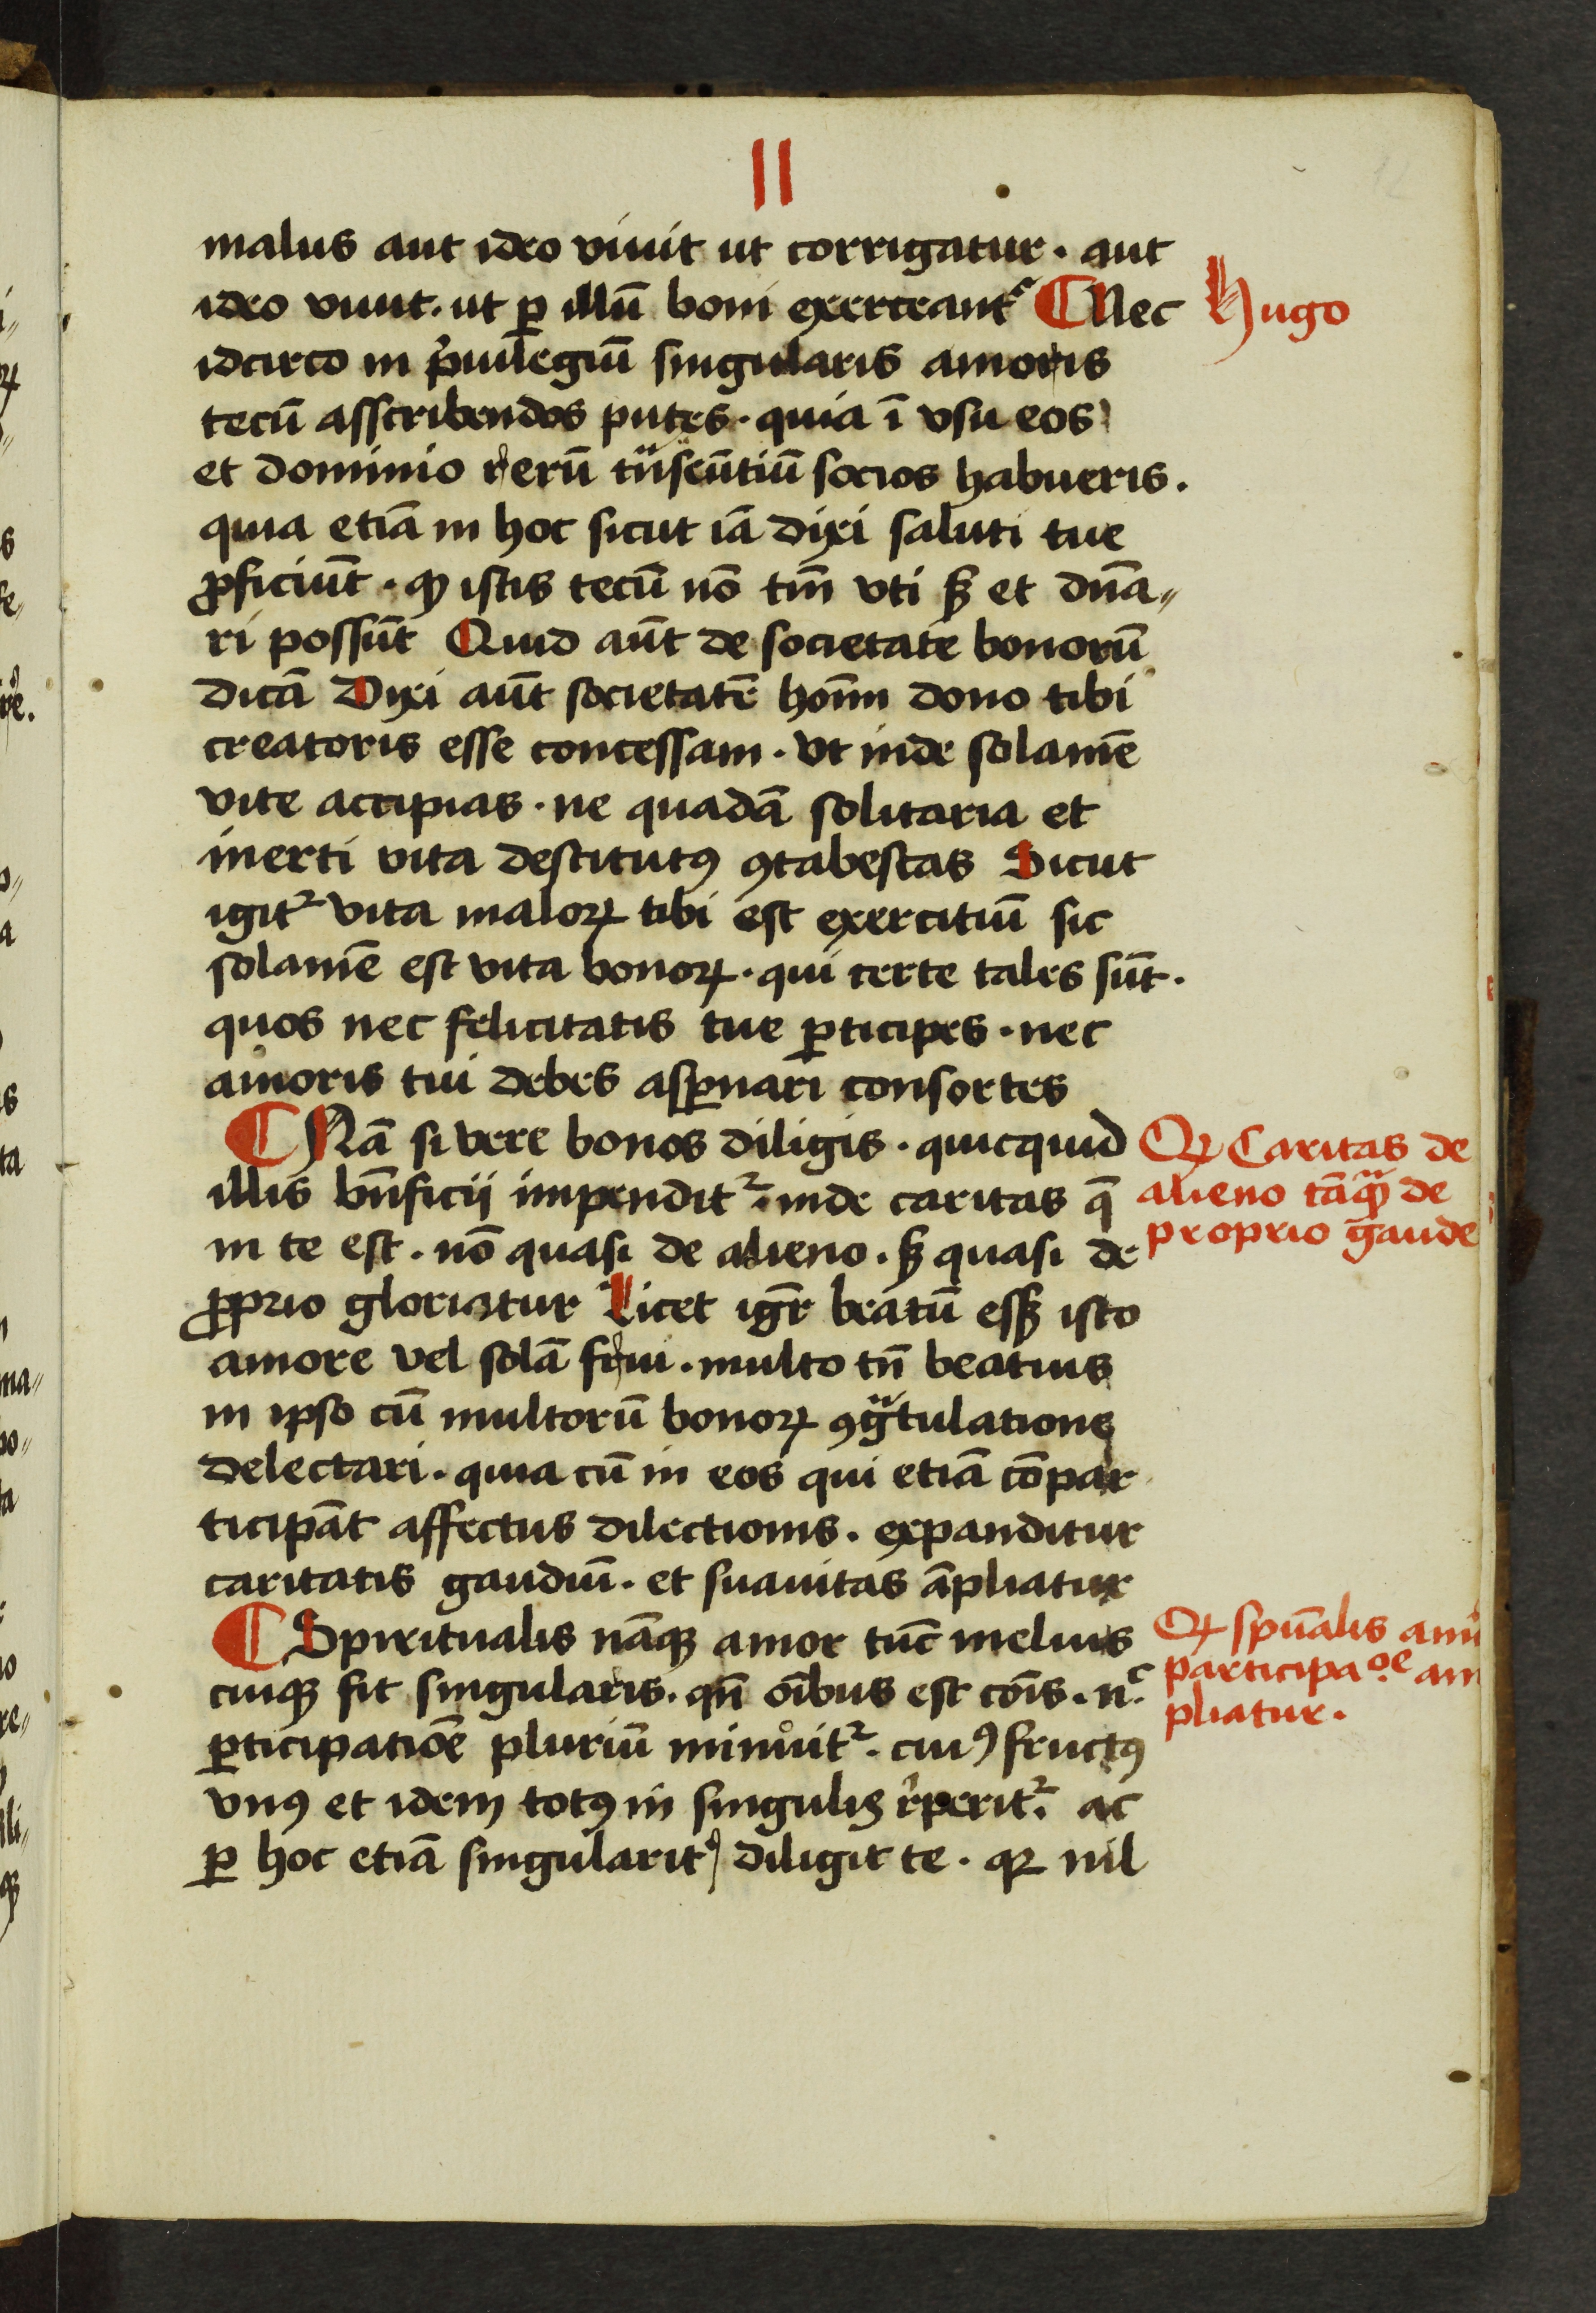 II
malus aut ideo viuit ut corrigatur · aut
ideo viuit · ut ꝑ illū boni exerceantr ¶ Nec
Hugo
idcirco in p̓uilegiū singularis amoris
tecū asscribendos putes · quia ī vsu eos
et dominio rerū tᷓnseūtiū socios habueris ·
quia etiā in hoc sicut iā dixi saluti tue
ꝓficiūt · ꝙ istis tecū nō tm̄ vti sꝫ et dn̄a〃
ri possūt Quid aūt de societate bonorū
dicā Dixi aūt societatē hoīm dono tibi
creatoris esse concessam · vt inde solamē
vite accipias · ne quadā solitaria et
inerti vita destitutꝯ ꝯtabescas Sicut
igitᷣ vita maloꝝ tibi est exercitiū sic
solamē est vita bonoꝝ · qui certe tales sūt ·
quos nec felicitatis tue ꝑticipes · nec
amoris tui debes aspnari consortes
¶ Nā si vere bonos diligis · quicquid
illis bn̄ficii impenditᷣ · inde caritas q̄
in te est · nō quasi de alieno · sꝫ quasi de
ꝓprio gloriatur Licet igr̄ beatū essꝫ isto
amore vel solā frui · multo tn̄ beatius
in ipso cū multorū bonoꝝ ꝯgᷓtulatione
delectari · quia cū in eos qui etiā cōpar
ticipāt affectus dilectionis · expanditur
caritatis gaudiū · et suauitas āpliatur
¶ Spiritualis nāqꝫ amor tūc melius
cuiqꝫ fit singularis · qn̄ oībus est cōis · nͨ
ꝑticipatiōe pluriū minuitᷣ · cuiꝯ fructꝯ
vnꝯ et idem totꝯ in singulis r̓peritᷣ · ac
ꝑ hoc etiā singularitꝰ diligit te · qꝛ nil
Qꝛ Caritas de
alieno tāqᷓꝫ de
proprio gaude
Qꝛ spūalis am
participaͦe am
pliatur ·